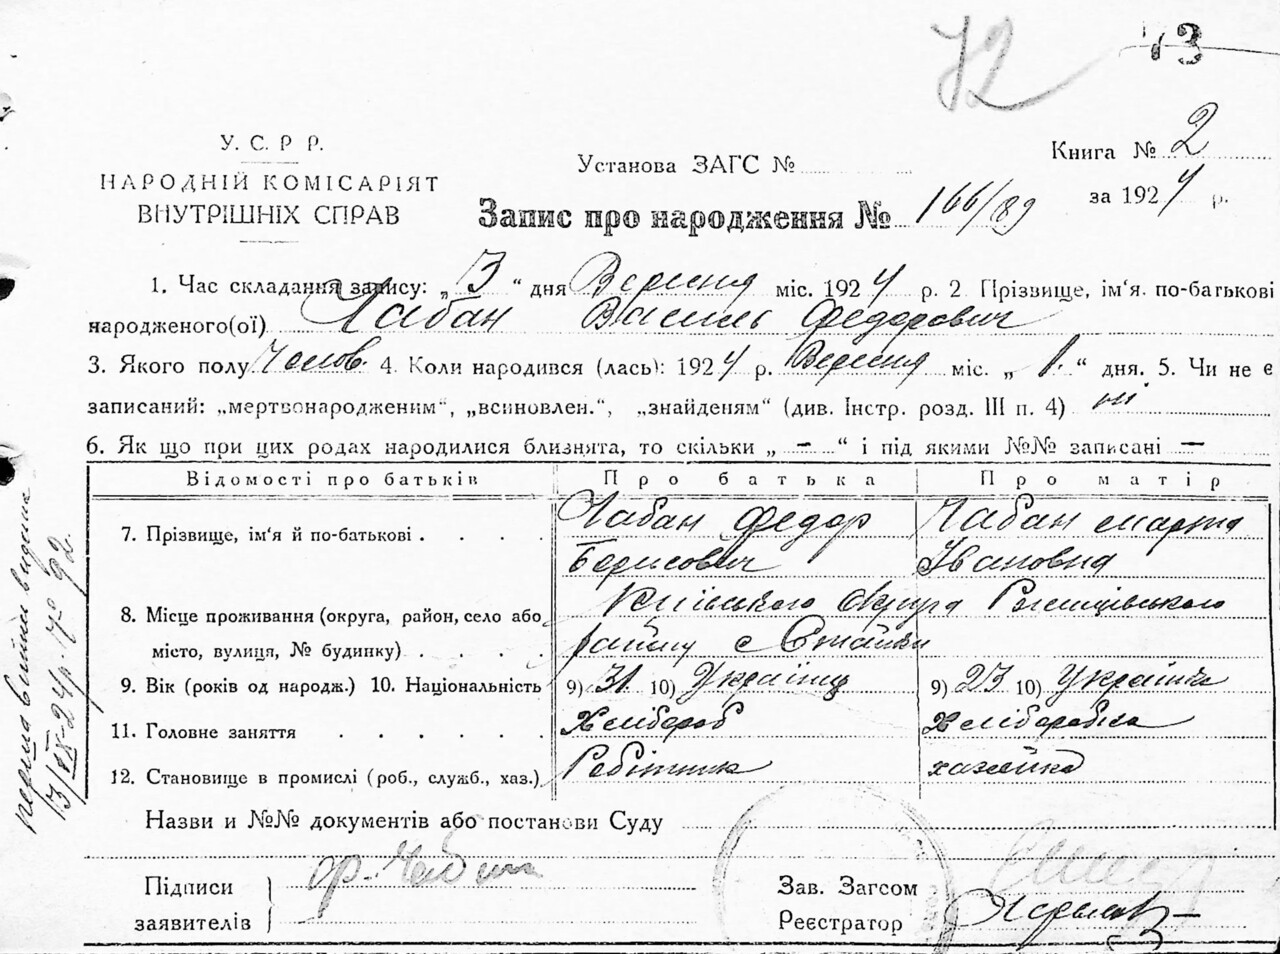 72 73
У. С. Р Р.
НАРОДНІЙ КОМІСАРІЯТ
ВНУТРІШНІХ СПРАВ
Установа ЗАГС №
Книга № 2
за 1924 р.
Запис про народження № 166/89
1. Час складання запису: „3“ дня Вересня міс. 1924 р. 2 Прізвище, ім'я. по-батькові
народженого(ої) Чабан Василь Федорович
3. Якого полу Чолов. 4. Коли народився (лась): 1924 р. Вересня міс. „1.“ дня. 5. Чи не є
записаний: „мертвонародженим“, „всиновлен.“, „знайденям“ (див. Інстр. розд. III п. 4) ні
6. Як що при цих родах народилися близнята, то скільки „ – “ і під якими №№ записані –
Відомості про батьків Про батька Про матір
7. Прізвище, ім'я й по-батькові . . . . Чабан Федор Чабан Марта
Борисович Івановна
8. Місце проживання (округа, район, село або Київського Округа Ржищівського
місто, вулиця, № будинку) . . . . району с Стайки
9. Вік (років од народж.) 10. Національність 9) 31 10) Українц 9) 23 10) Українка
11. Головне заняття . . . . . . Хлібороб Хліборобка
12. Становище в промислі (роб., служб., хаз.) Робітник хазяйка
Назви и №№ документів або постанови Суду
Підписи гр. Чабан
заявителів
Зав. Загсом
Реєстратор
13/IX-24 р. № 92.